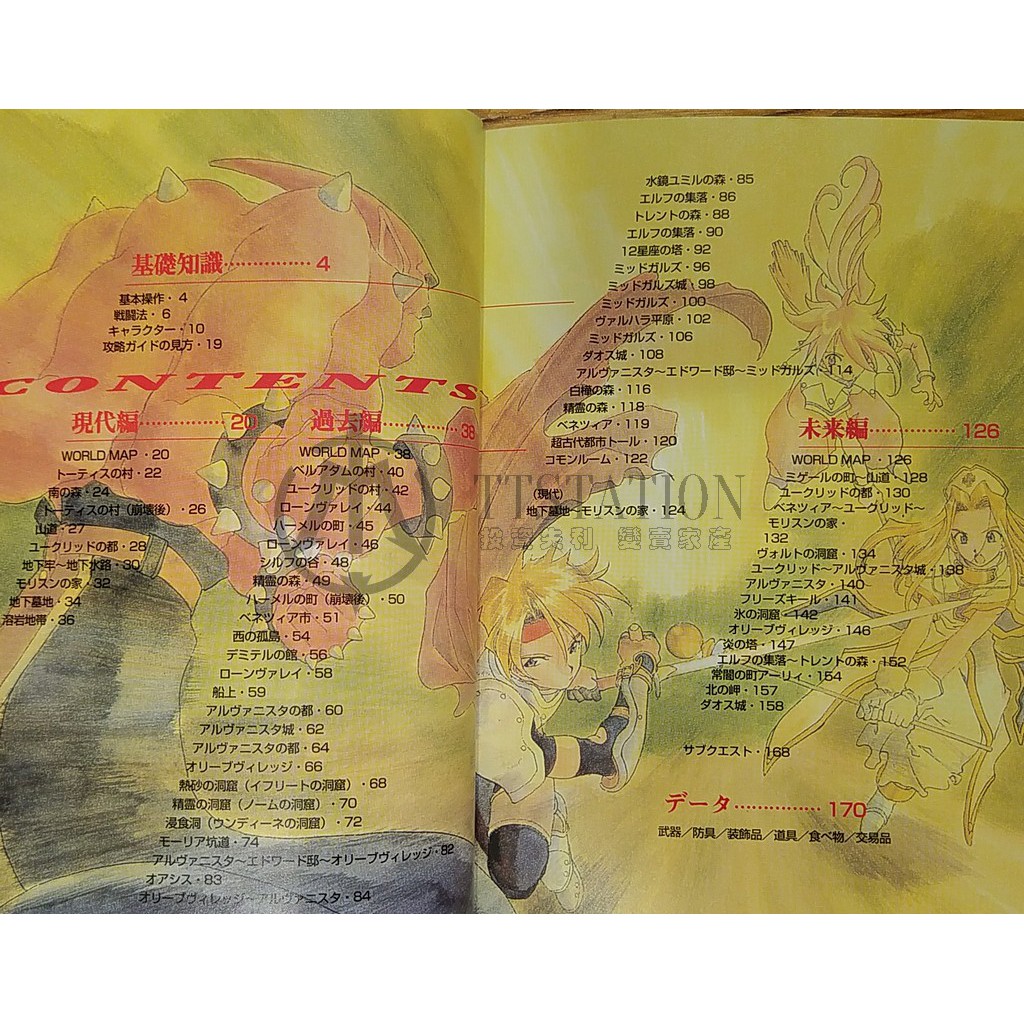 基礎知識……………4
基本操作・4
戦闘法・6
キャラクター・10
攻略ガイドの見方・19
CONTENTS
現代編……………20
WORLD MAP・20
トーティスの村・22
南の森・24
トーティスの村（崩壊後）・26
山道・27
ユークリッドの都・28
地下牢〜地下水路・30
モリスンの家・32
地下墓地・34
溶岩地帯・36
過去編……………38
WORLD MAP・38
ベルアダムの村・40
ユークリッドの村・42
ローンヴァレイ・44
ハーメルの町・45
ローンヴァレイ・46
シルフの谷・48
精霊の森・49
ハーメルの町（崩壊後）・50
ベネツィア市・51
西の孤島・54
デミテルの館・56
ローンヴァレイ・58
船上・59
アルヴァニスタの都・60
アルヴァニスタ城・62
アルヴァニスタの都・64
オリーブヴィレッジ・66
熱砂の洞窟（イフリートの洞窟）・68
精霊の洞窟（ノームの洞窟）・70
浸食洞（ウンディーネの洞窟）・72
モーリア坑道・74
アルヴァニスタ〜エドワード邸〜オリーブヴィレッジ・82
オアシス・83
オリーブヴィレッジ〜アルヴァニスタ・84
水鏡ユミルの森・85
エルフの集落・86
トレントの森・88
エルフの集落・90
12星座の塔・92
ミッドガルズ・96
ミッドガルズ城・98
ミッドガルズ・100
ヴァルハラ平原・102
ミッドガルズ・106
ダオス城・108
アルヴァニスタ〜エドワード邸〜ミッドガルズ・114
白樺の森・116
精霊の森・118
ベネツィア・119
超古代都市トール・120
コモンルーム・122
（現代）
地下墓地〜モリスンの家・124
未来編……………126
WORLD MAP・126
ミゲールの町〜山道・128
ユークリッドの都・130
ベネツィア〜ユークリッド〜
モリスンの家・
132
ヴォルトの洞窟・134
ユークリッド〜アルヴァニスタ城・138
アルヴァニスタ・140
フリーズキール・141
氷の洞窟・142
オリーブヴィレッジ・146
炎の塔・147
エルフの集落〜トレントの森・152
常闇の町アーリィ・154
北の岬・157
ダオス城・158
サブクエスト・168
データ……………170
武器／防具／装飾品／道具／食べ物／交易品
TTSTATION
投資失利 變賣家產